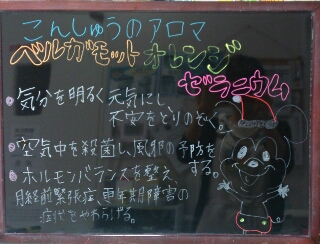 こんしゅうのアロマ
ベルガモットオレンジ
ゼラニウム
気分を明るく元気にし
不安をとりのぞく
空気中を殺菌し、風邪の予防を
する。
ホルモンバランスを整え
月経前緊張症、更年期障害の
症状をやわらげる。